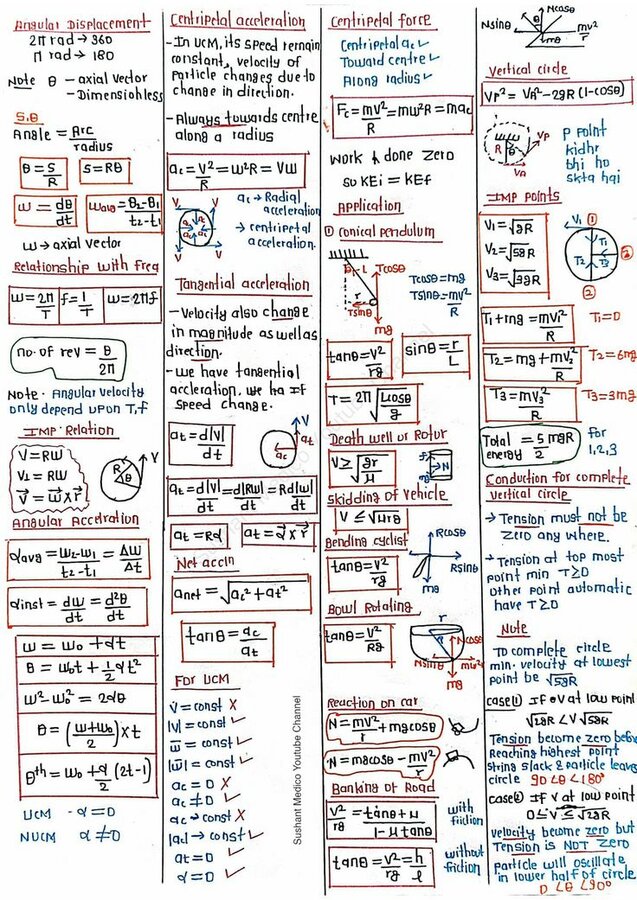 Angular Displacement
2π rad → 360
π rad → 180
Note θ - axial vector
- Dimensionless
S.θ
Angle = Arc/radius
θ = S/R
S = Rθ
ω = dθ/dt
ωavg = θ2-θ1/t2-t1
ω → axial vector
Relationship with freq
ω = 2π/T
f = 1/T
ω = 2πf
no. of rev = θ/2π
Note. Angular velocity
only depend upon T,f
IMP. Relation
V = Rω
V⊥ = Rω
V⃗ = ω⃗ x r⃗
R
θ
V
Angular Acceleration
αavg = ω2-ω1/t2-t1 = Δω/Δt
αinst = dω/dt = d²θ/dt
ω = ω0 + αt
θ = ω0t + 1/2 αt²
ω² - ω0² = 2αθ
θ = (ω+ω0/2) x t
θth = ω0 + α/2 (2t-1)
UCM - α = 0
NUCM α ≠ 0
Centripetal acceleration
- In UCM, its speed remain
constant, velocity of
Particle changes due to
change in direction.
- Always towards centre
along a radius
ac = V²/R = ω²R = Vω
V
V
V
V
ac → Radial
acceleration
→ centripetal
acceleration.
Tangential acceleration
- Velocity also change
in magnitude as well as
direction.
- we have tangential
accleration, we ha If
speed change.
at = d|V|/dt
V
at
ac
at = d|V|/dt = d|Rω|/dt = Rd|ω|/dt
at = Rα
at = α⃗ x r⃗
Net accln
anet = √ac² + at²
tanθ = ac/at
For UCM
V̄ = const X
|V| = const ✓
ω̄ = const ✓
|ω̄| = const ✓
ac = 0 X
ac ≠ 0 ✓
ac → const X
|ac| → const ✓
at = 0 ✓
α = 0 ✓
Sushant Medico Youtube Channel
Centripetal force
Centripetal ac ✓
Toward centre ✓
Along radius ✓
Fc = mV²/R = mω²R = mac
work is done zero
so KEi = KEf
Application
① conical pendulum
L
r
Tcosθ
Tsinθ
mg
Tcosθ = mg
Tsinθ = mV²/R
tanθ = V²/rg
sinθ = r/L
T = 2π√Lcosθ/g
Death well or Rotor
V ≥ √gr/μ
f
N
Skidding of vehicle
V ≤ √μrg
Bending cyclist
tanθ = V²/rg
Rcosθ
Rsinθ
mg
Bowl Rotating
tanθ = V²/Rg
r
Ncosθ
Nsinθ
mω²r
mg
Reaction on car
N = mV²/r + mgcosθ
N = mgcosθ - mV²/r
Banking of Road
V²/rg = tanθ + μ/1 - μtanθ
with
friction
tanθ = V²/rg = h/l
without
friction
Ncosθ
Nsinθ
θ
mV²/r
mg
Vertical circle
VP² = VA² - 2gR (1-cosθ)
R
θ
VP
VA
P point
kidhr
bhi ho
skta hai
IMP POINTS
V1 = √gR
V2 = √5gR
V3 = √3gR
V1
①
T1
T2
T3
③
②
T1 + mg = mV1²/R
T1 = 0
T2 = mg + mV2²/R
T2 = 6mg
T3 = mV3²/R
T3 = 3mg
Total energy = 5/2 mgR
for
1,2,3
Conduction for complete
vertical circle
→ Tension must not be
zero any where.
→ Tension at top most
point min T≥0
Other point automatic
have T≥0
Note
To complete circle
min. velocity at lowest
point be √5gR
case(1) If V at low point
√2gR < V √5gR
Tension become zero before
Reaching highest point
string slack & particle leave
circle 90<θ<180°
case(2) If V at low point
0 ≤ V ≤ √2gR
velocity become zero but
Tension is NOT zero
particle will oscillate
in lower half of circle
0 <θ <90°